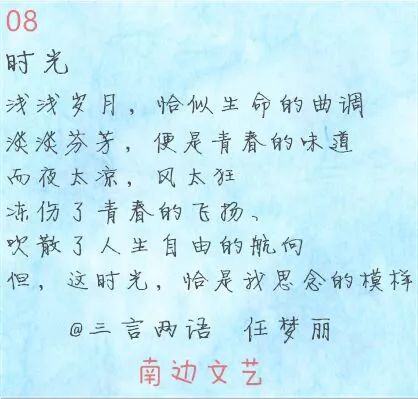 08
时光
浅浅岁月，恰似生命的曲调
淡淡芬芳，便是青春的味道
而夜太凉，风太狂
冻伤了青春的飞扬、
吹散了人生自由的航向
但，这时光，恰是我思念的模样
@三言两语 任梦丽
南边文艺